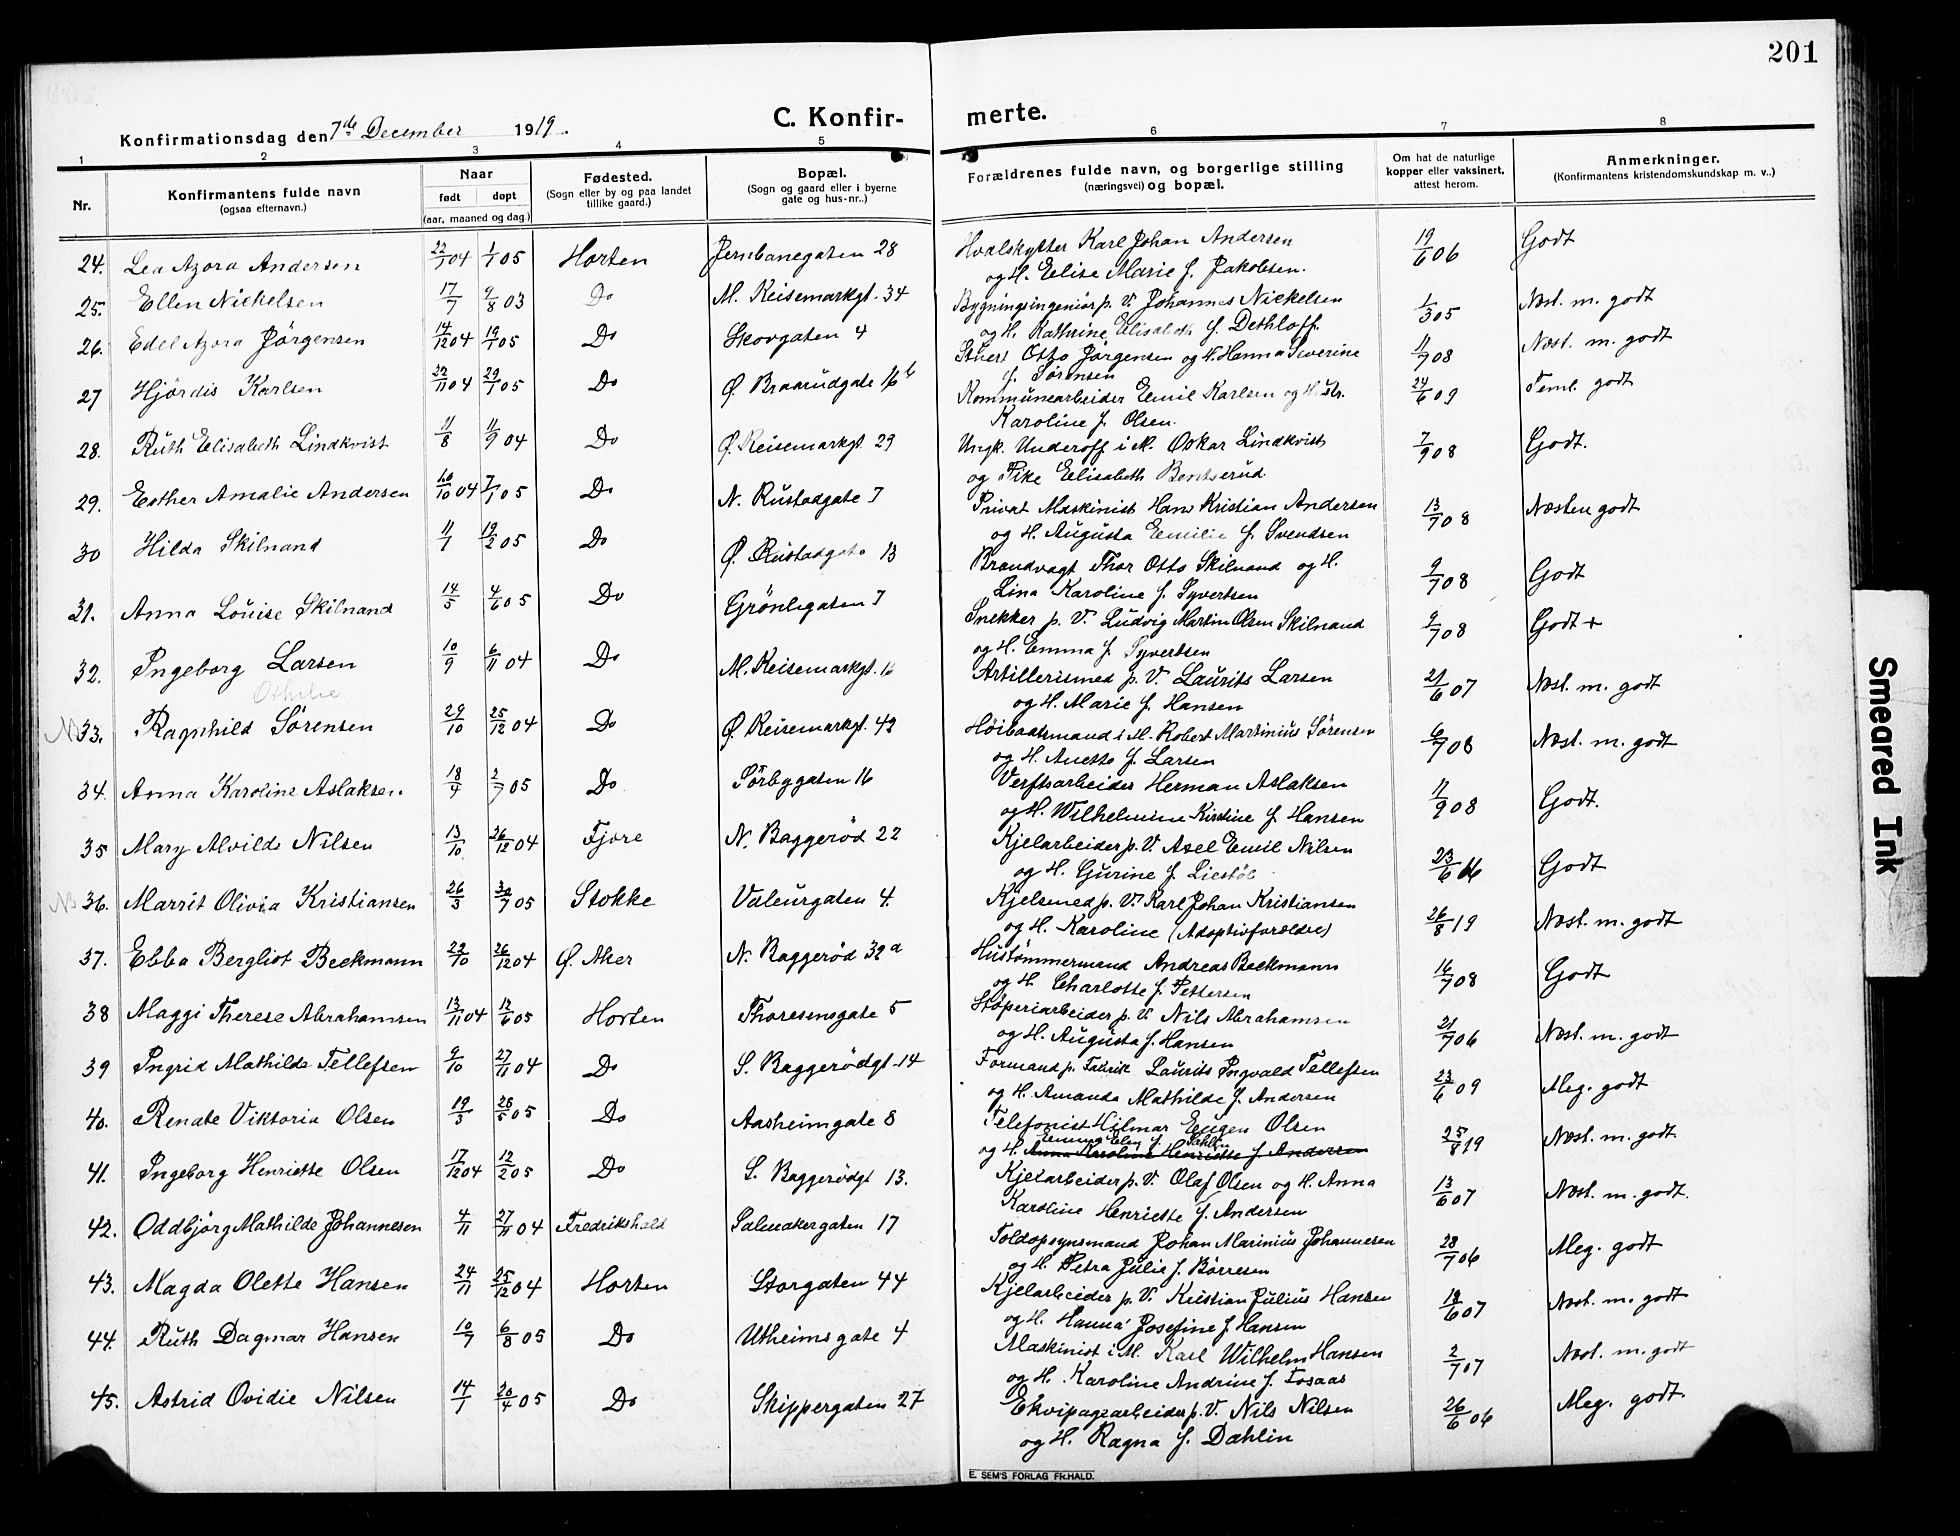 201
Konfirmationsdag den 7de December 1919.
C. Konfir- merte.
1 2 3 4 5 6 7 8
Nr.
Konfirmantens fulde navn
(ogsaa efternavn.)
Naar
født døpt
(aar, maaned og dag.)
Fødested.
(Sogn eller by og paa landet
tillike gaard.)
Bopæl.
(Sogn og gaard eller i byerne
gate og hus-nr..)
Forældrenes fulde navn, og borgerlige stilling
(næringsvei) og bopæl.
Om hat de naturlige
kopper eller vaksinert,
attest herom.
Anmerkninger.
(Konfirmantens kristendomskundskap m. v..)
24. Lea Azora Andersen 22/1 04 1/1 05 Horten Jernbanegaten 28 Hvalskytter Karl Johan Andersen 19/6 06 Godt
og H. Elise Marie f. Jakobsen.
25. Ellen Nickelsen 17/7 9/8 03 Do M. Keisemarkgt. 34 Bygningsingeniør p. V. Johannes Nickelsen 1/3 05 Næst. m. godt
og H. Kathrine Elisabeth f. Dethloff.
26. Edel Azora Jörgensen 14/12 04 19/1 05 Do Skovgaten 4 Stuert Otto Jörgensen og H. Hanna Severine 11/7 08 Næst. m. godt
f. Sørensen
27 Hjördis Karlsen 22/11 04 29/1 05 Do Ø. Braarudgate 16 b Kommunearbeider Emil Karlsen og Hustr. 24/6 09 Teml. godt
Karoline f. Olsen.
28. Ruth Elisabeth Lindkvist 11/8 11/9 04 Do Ø. Keisemarkgt. 29 Ungk. Underoff i M. Oskar Lindkvist 7/9 08 Godt.
og Pike Elisabeth Bentserud
29. Esther Amalie Andersen 10/10 04 7/1 05 Do N. Rustadgate 7 Privat Maskinist Hans Kristian Andersen 13/7 08 Næsten godt
og H. Augusta Emilie f. Svendsen
30 Hilda Skilnand 11/1 19/2 05 Do Ø. Rustadgate 13 Brandvagt Thor Otto Skilnand og H. 9/7 08 Godt
Lina Karoline f. Syvertsen
31. Anna Louise Skilnand 14/5 4/6 05 Do Grönligaten 7 Snekker p. V. Ludvig Martin Olsen Skilnand 9/7 08 Godt +
og H. Emma f. Syvertsen
32. Ingeborg Larsen 10/9 6/11 04 Do M. Keisemarkgt. 16 Artillerismed p. V. Laurits Larsen 21/6 07 Næst. m. godt
og H. Marie f. Hansen
Othilie
33. Ragnhild Sörensen 29/10 25/12 04 Do Ø. Keisemarkgt. 42 Höibaatsmand i M. Robert Martinius Sörensen 6/7 08 Næst. m. godt
og H. Anette f. Larsen
34. Anna Karoline Aslaksen. 18/4 2/7 05 Do Sörbygaten 16 Verftsarbeider Herman Aslaksen 11/9 08 Godt.
og H. Wilhelmine Kirstine f. Hansen
35 Mary Alvilde Nilsen 13/10 26/12 04 Fjøre N. Baggeröd 22 Kjelarbeider p. V. Axel Emil Nilsen 23/6 16 Godt
og H. Gurine f. Liestöl
36. Marrit Olivia Kristiansen 26/3 30/7 05 Stokke Valeurgaten 4. Kjelsmed p. V. Karl Johan Kristiansen 26/8 19 Næst. m. godt
og H. Karoline (Adoptivforældre)
37. Ebba Bergliot Beckmann 22/10 26/12 04 Ø. Aker N. Baggeröd 32 a Hustömmermand Andreas Beckmann 16/7 08 Godt
og H. Charlotte f. Pettersen
38 Maggi Therese Abrahamsen 13/11 04 12/6 05 Horten Thoresensgate 5 Støperiarbeider p. V. Nils Abrahamsen 21/7 06 Næst. m. godt
og H. Augusta f. Hansen
39 Ingrid Mathilde Tellefsen 9/10 27/11 04 Do S. Baggerödgt. 14 Formand p. Fabrik Laurits Ingvald Tellefsen 23/6 09 Meg. godt
og H. Amanda Mathilde f. Andersen
40. Renate Viktoria Olsen 19/3 28/5 05 Do Aasheimgate 8 Telefonist Hilmar Eugen Olsen 25/8 19 Næst. m. godt
Emma Elen f. Dahlin
og H. Anna Karoline Henriette f. Andersen
41. Ingeborg Henriette Olsen 17/12 04 12/2 05 Do S. Baggerödgt 13. Kjelarbeider p. V. Olaf Olsen og H. Anna 13/6 07 Næst. m. godt.
Karoline Henriette f. Andersen
42. Oddbjörg Mathilde Johannesen 4/11 27/11 04 Fredrikshald Salmakergaten 17 Toldopsynsmand Johan Marinius Johannesen 28/7 06 Meg. godt
og H. Petra Julie f. Börresen
43. Magda Olette Hansen 24/11 25/12 04 Horten Storgaten 44 Kjelarbeider p. V. Kristian Julius Hansen 18/6 07 Næst. m. godt
og H. Hanna Josefine f. Hansen
44. Ruth Dagmar Hansen 10/7 6/8 05 Do Utheimsgate 4 Maskinist i M. Karl Wilhelm Hansen 2/7 07 Næst. m. godt
og H. Karoline Andrine f. Fosaas
45. Astrid Ovidie Nilsen 14/1 20/4 05 Do Skippergaten 27 Ekvipagearbeider p. V. Nils Nilsen 26/6 06 Meg. godt.
og H. Ragna f. Dæhlin
E. SEM'S FORLAG FR.HALD.
Smeared Ink